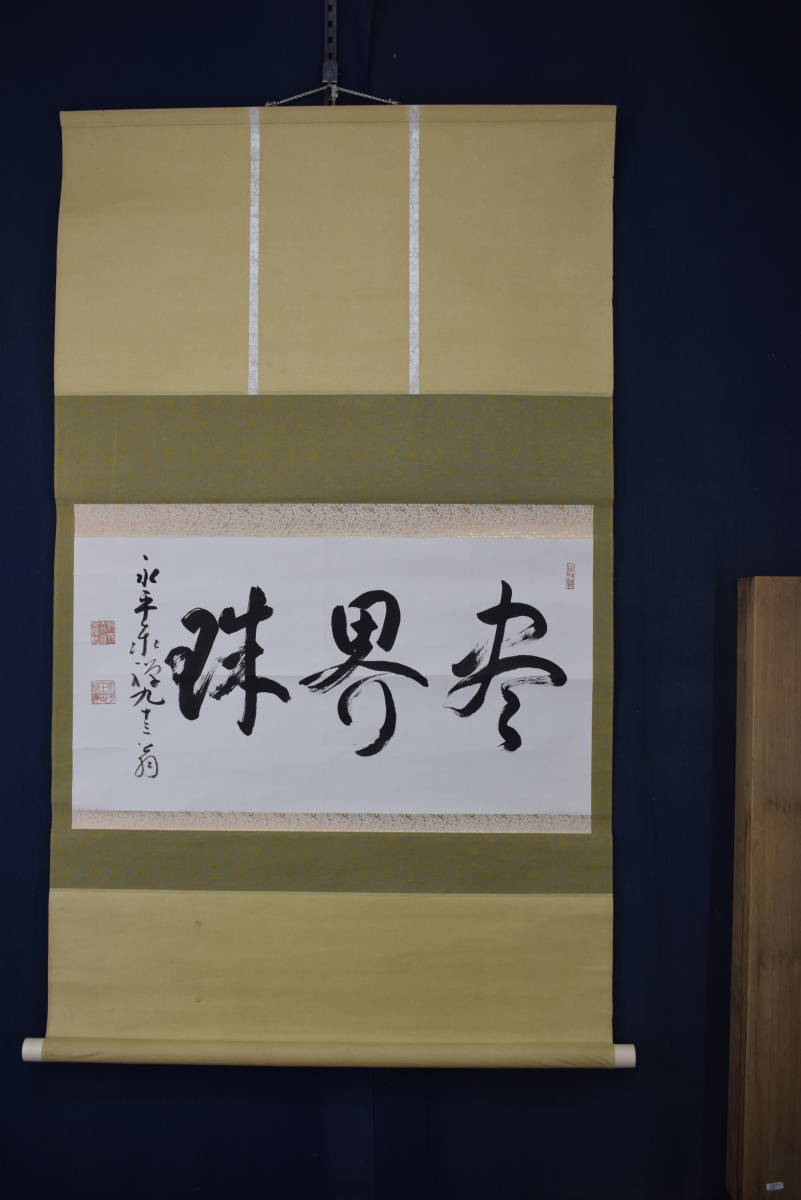 尽界珠
永平泰禅九十三翁